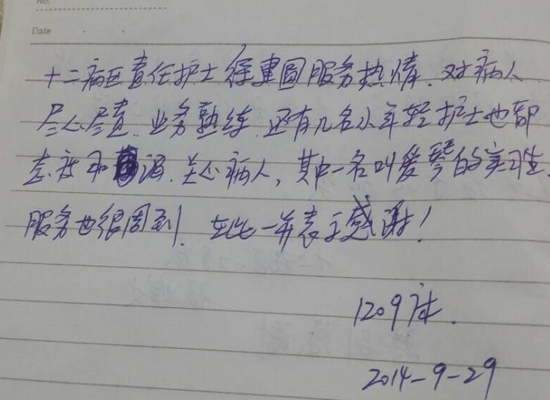 No.
Date
十二病区责任护士徐建圆服务热情.对病人
尽心尽责.业务熟练.还有几名小年轻护士也都
态度和温.关心病人,其中一名叫爱琴的实习生.
服务也很周到.在此一并表示感谢!
1209床.
2014-9-29